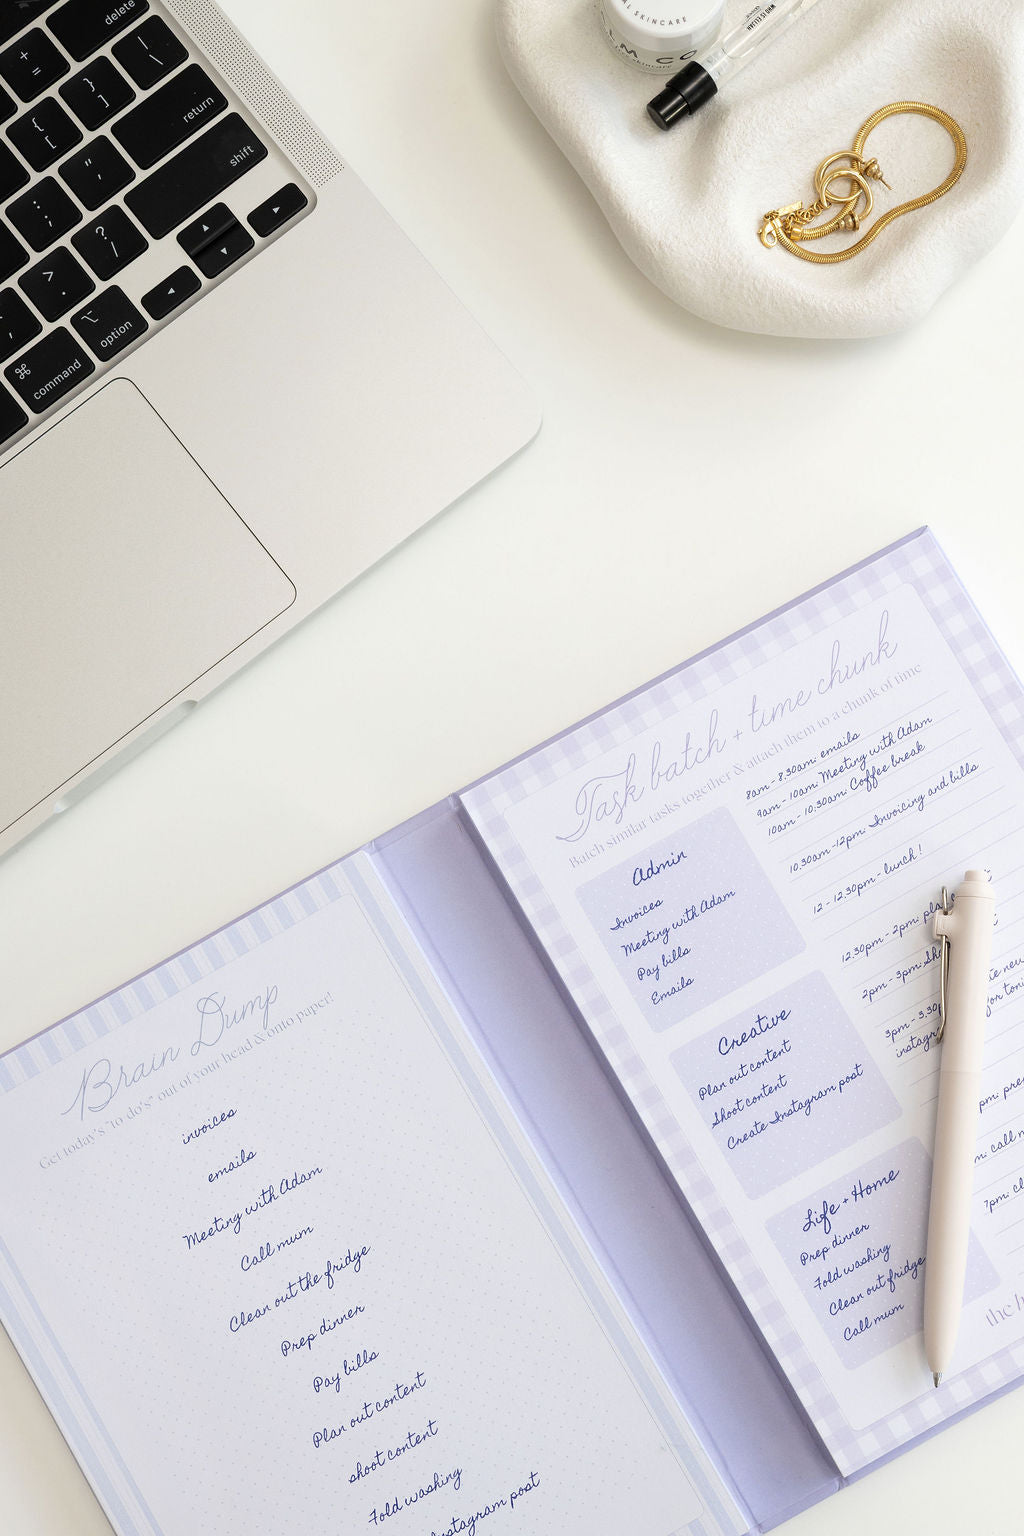 delete
+
=
|
\
}
]
return
{
[
"
'
shift
:
;
?
/
>
.
option
command
SKINCARE
WHO IS ELIJAH
Brain Dump
Get today's "to do's" out of your head & onto paper!
invoices
emails
Meeting with Adam
Call mum
Clean out the fridge
Prep dinner
Pay bills
Plan out content
shoot content
Fold washing
post
Task batch + time chunk
Batch similar tasks together & attach them to a chunk of time
Admin
Invoices
Meeting with Adam
Pay bills
Emails
Creative
Plan out content
Shoot content
Create Instagram post
Life + Home
Prep dinner
Fold washing
Clean out fridge
Call mum
8am - 8.30am: emails
9am - 10am: Meeting with Adam
10am - 10.30am: Coffee break
10.30am - 12pm: Invoicing and bills
12 - 12.30pm - lunch!
12.30pm - 2pm:
2pm - 3pm:
3pm - 3.30p
pm:
call
7pm:
the